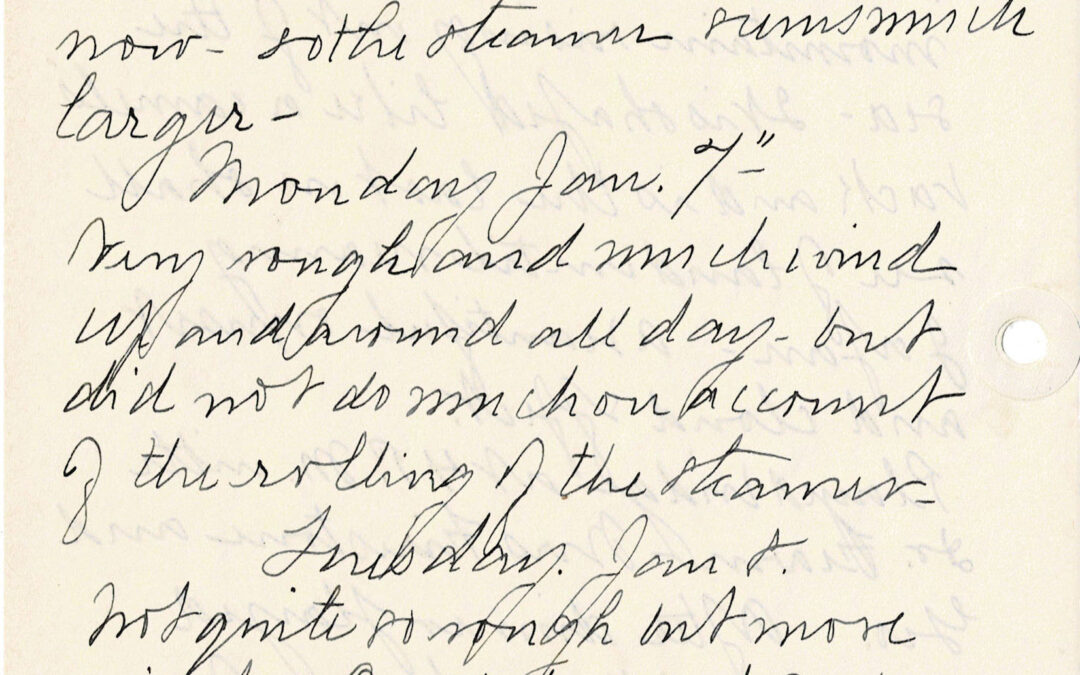 now - so the steamer seems much
larger -
Monday Jan. 7"
Very rough and much wind
up and around all day - but
did not do much on account
of the rolling of the steamer -
Tuesday. Jan 8.
Not quite so rough but more